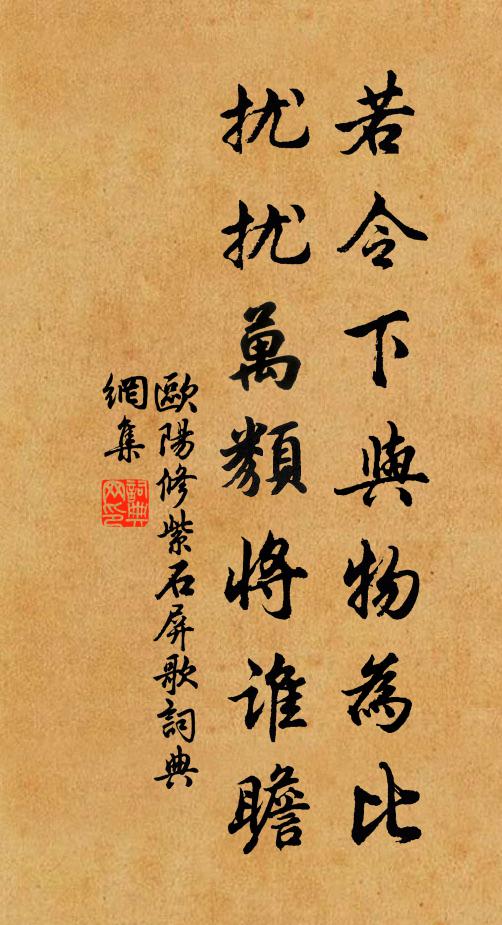 若令下與物為比
扰扰萬類將誰瞻
歐陽修紫石屏歌詞典
網集
詞典
网印